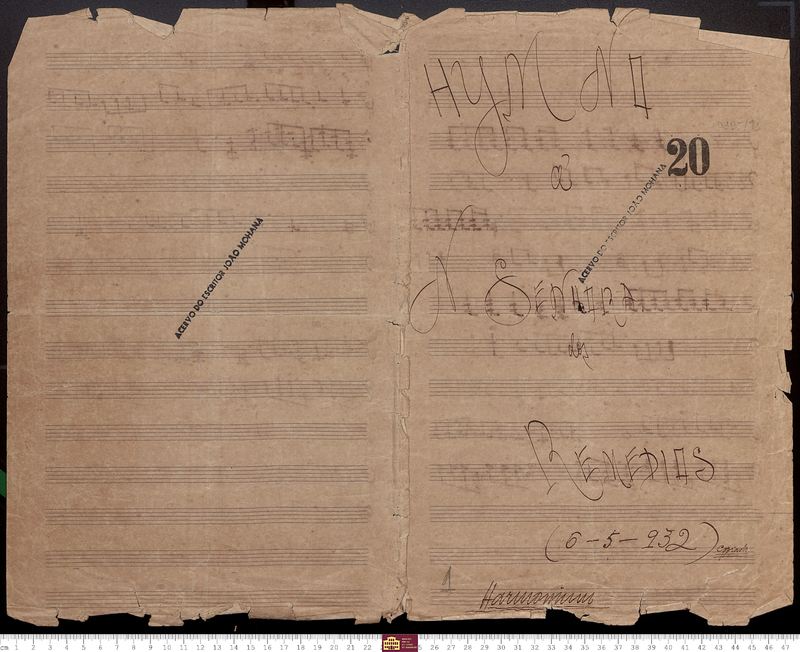 ACERVO DO ESCRITOR JOÃO MOHANA
HYMNO
20
á
ACERVO DO ESCRITOR JOÃO MOHANA
N Senhora
dos
Remedios
(6-5-932)
1
Harmonium
cm 1 2 3 4 5 6 7 8 9 10 11 12 13 14 15 16 17 18 19 20 21 22 25 26 27 28 29 30 31 32 33 34 35 36 37 38 39 40 41 42 43 44 45 46 47